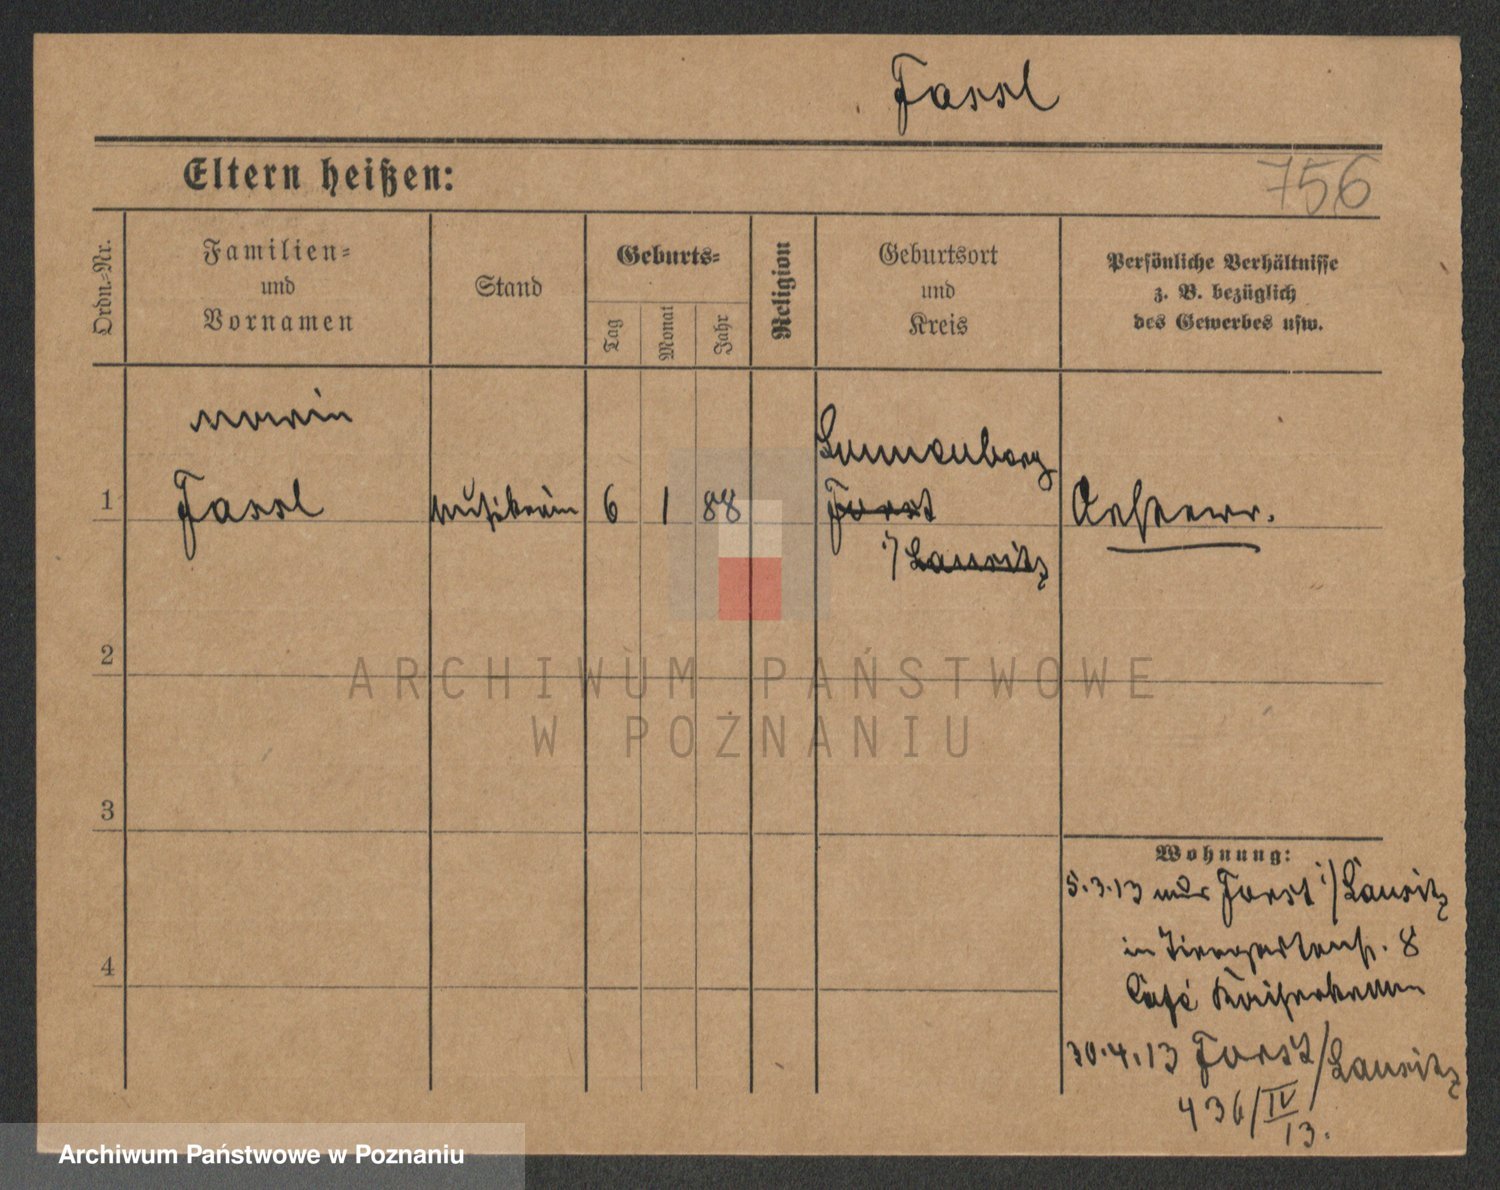 Fassl
Eltern heißen:
756
Ordn.-Nr.
Familien-
und
Vornamen
Stand
Geburts-
Tag
Monat
Jahr
Religion
Geburtsort
und
Kreis
Persönliche Verhältnisse
z. B. bezüglich
des Gewerbes usw.
1
Fassl
Musikerin
6
1
88
Forst
i/Lausitz
Oesterr.
2
ARCHIWUM PAŃSTWOWE
W POZNANIU
3
Wohnung:
5.3.13 aus Forst i/Lausitz
in Tiergartenstr. 8
Café Kaiserkrone
4
30.4.13 Forst/Lausitz
436/IV
13.
Archiwum Państwowe w Poznaniu